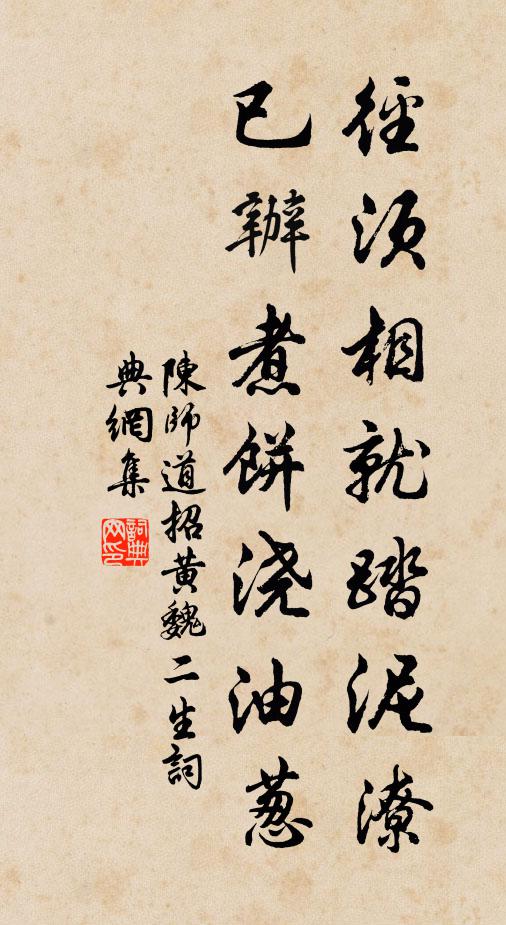 徑須相就踏泥潦
已辦煮餅浇油葱
陳師道招黄魏二生詞
典網集
詞典
网印